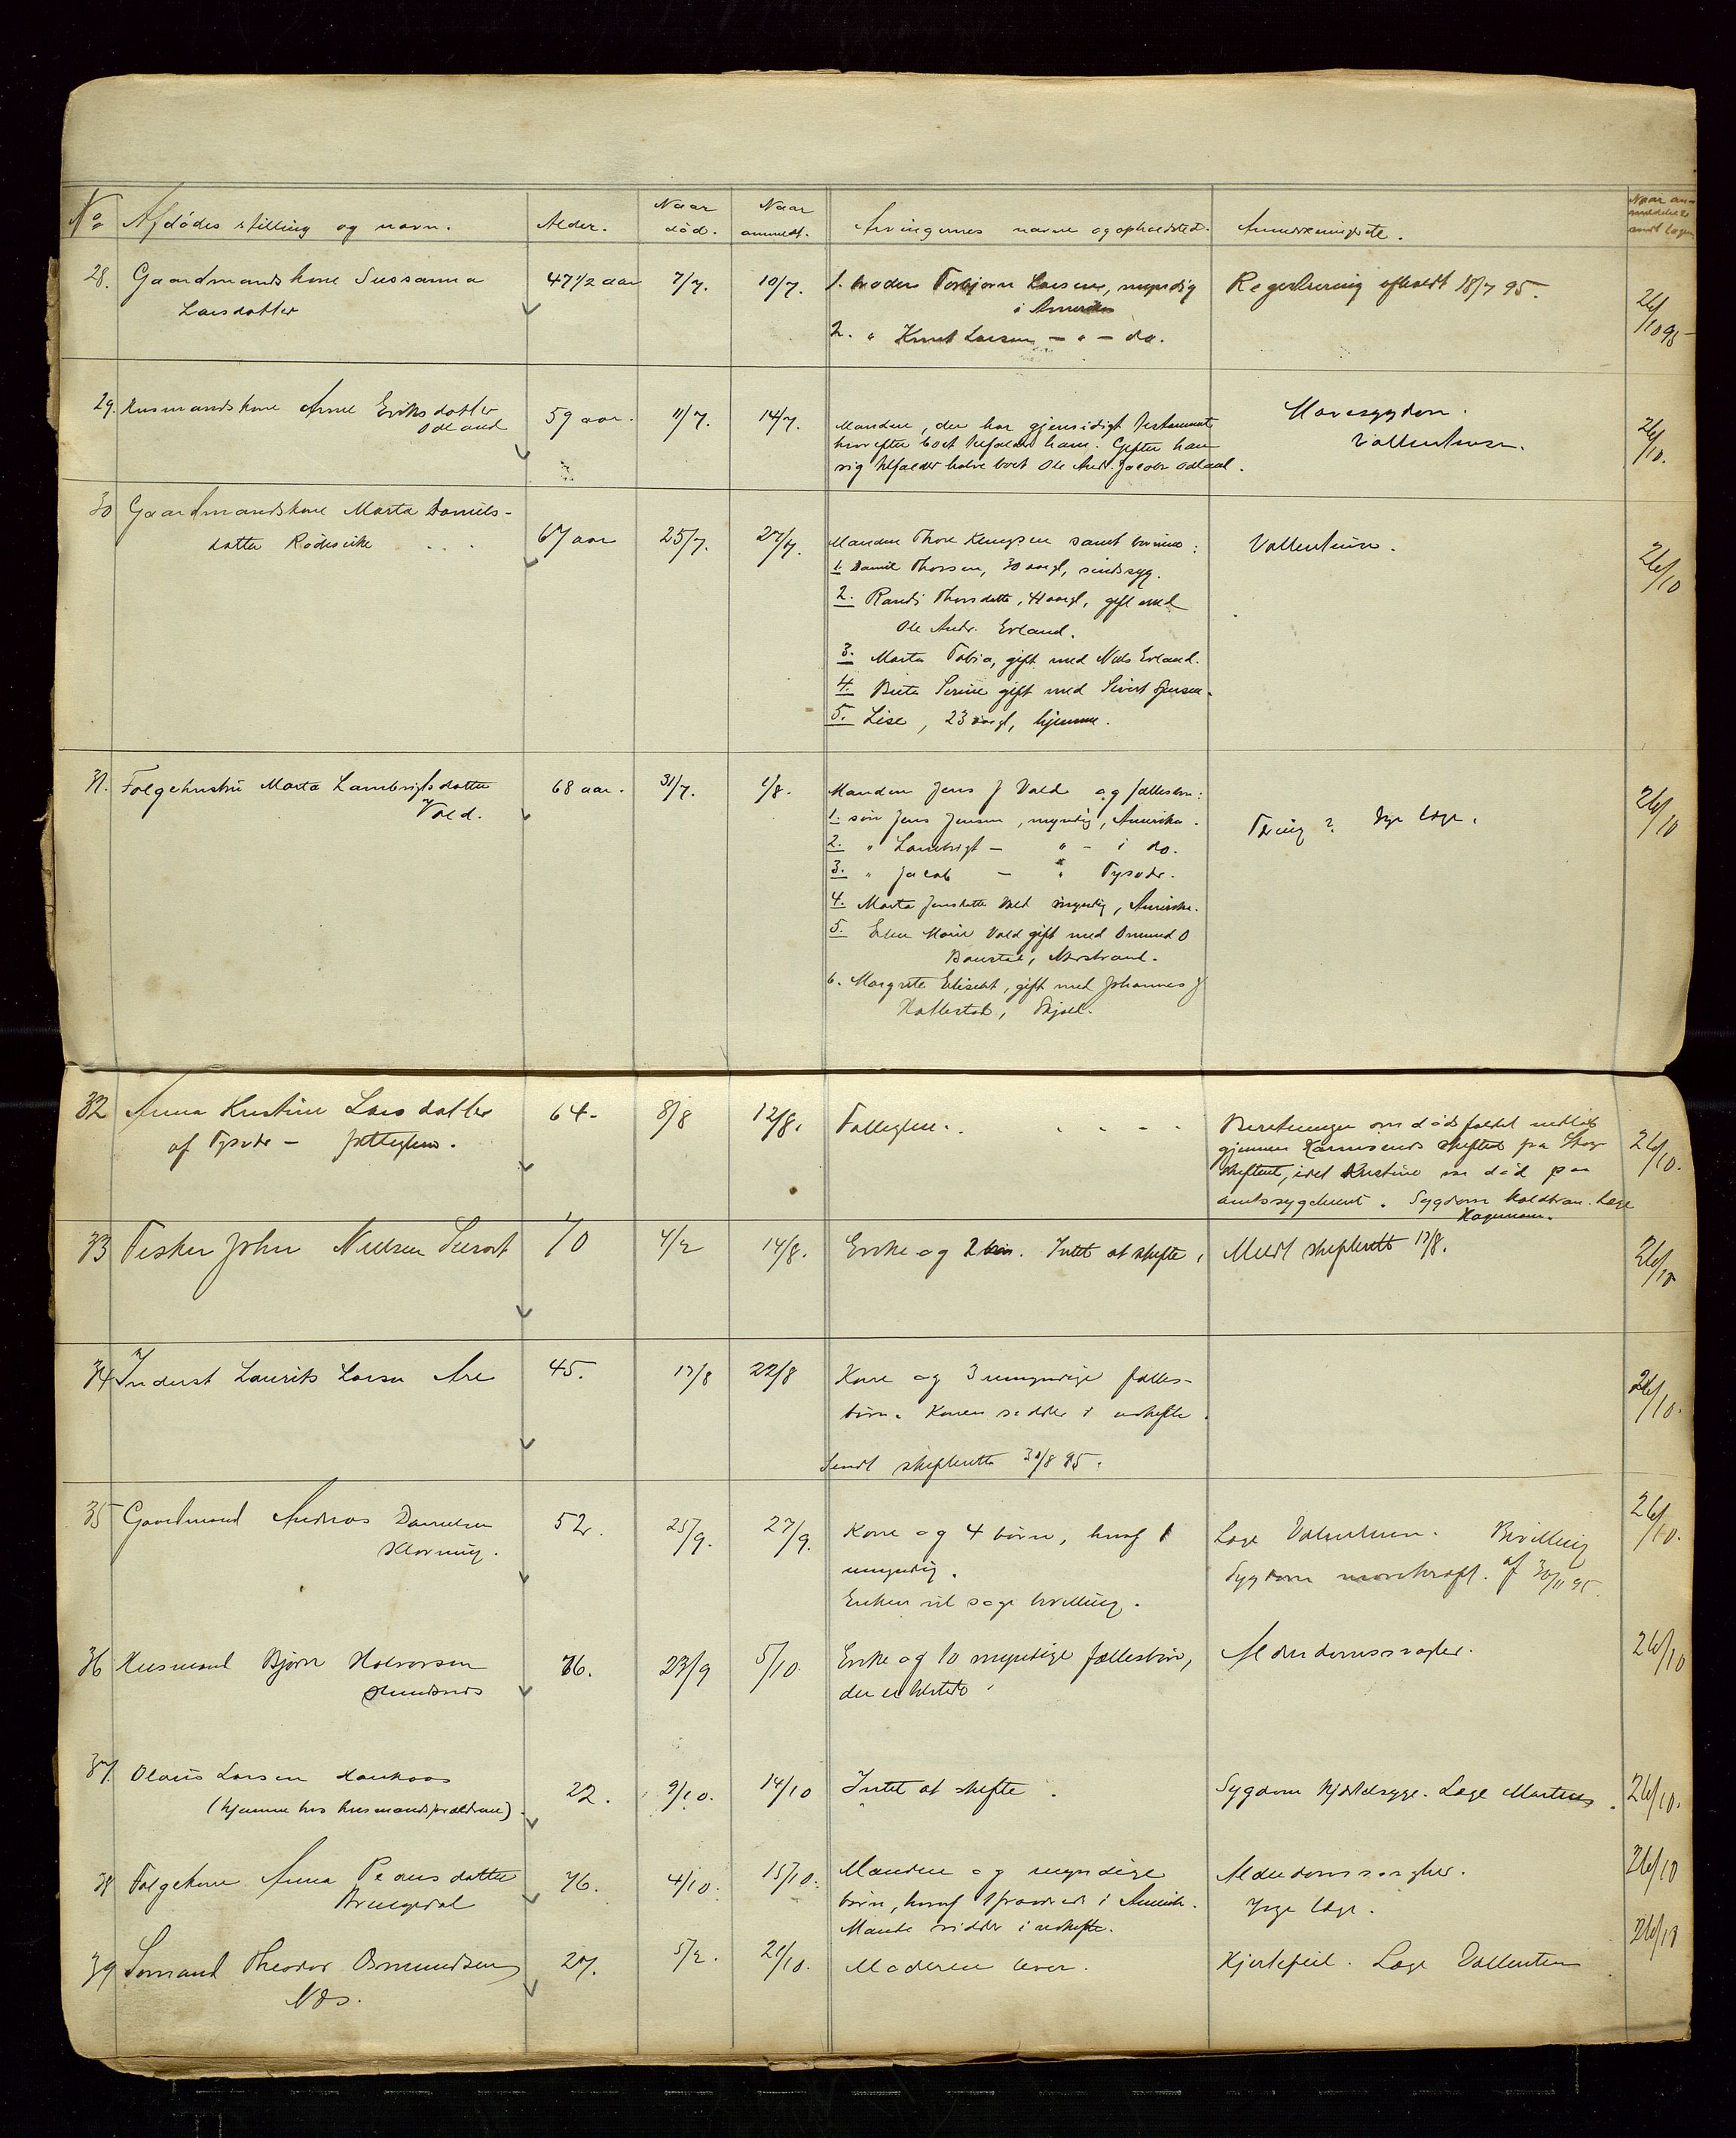 No Afdødes stilling og navn. Alder. Naar død. Naar anmeldt. Arvingernes navne og opholdssted. Anmerkning
28. Gaardmandskone Sussanna Larsdatter 47 1/2 aar 7/7. 10/7.
1. broder Torbjørn Larsen, myndig
i Amerika
2. " Knut Larsen – " – do.
Registrering afholdt 18/7 95.
26/10 95
29. Husmandskone Anne Eriksdatter
Odland
59 aar. 11/7. 14/7.
Manden, der har gjensidigt testament
hvorefter boet tilfalder ham. Gifter han
sig tilfalder halve boet Ole Andr. Jacobs Odland.
Mavesygdom.
Vallentinsen.
26/10.
30 Gaardmandskone Marta Daniels-
datter Rødsvike
67 aar 25/7. 27/7.
Manden Thore samt børnene:
1. Daniel Thorsen, 30 aargl, sindssyg.
2. Randi Thorsdatter, 41 aargl, gift med
Ole Andr. Erland.
3. Marta Tobia, gift med Nils Erland.
4. Berte Serine gift med Sivert Jensen.
5. Lise, 23 aargl, hjemme.
Vallentinsen.
26/10
31. Følgehustru Marta Lambrigtsdatter
Vold.
68 aar. 31/7. 1/8.
Manden Jens J Vold og fællesbørn:
1. søn Jens Jensen, myndig, Amerika.
2. " Lambrigt – " – i do.
3. " Jacob – " Tysvær.
4. Marta Jensdatter Vold myndig, Amerika.
5. Elen Marie Vold gift med Omund O
Baustad, Nerstrand.
6. Margrete Elisabt, gift med Johannes J
Hallestad, Skjold.
Tæring? Ikke læge.
26/10
32 Anna Kristine Larsdatter
af Tysvær –
64– 8/8 12/8.
Beretningen om dødsfaldet
gjennem skifteret
skifteret, idet Kristine var død paa
amtssygehuset. Sygdom koldbran. Læge
Hagemann.
26/10.
33 Fisker John Nielsen
70 4/2 14/8.
Enke og 2 børn. Intet at skifte.
Meldt skifterett 17/8.
26/10
34 Inderst Laurits Larsen Are 45. 17/8 22/8
Kone og 3 umyndige fælles-
børn. Konen sidder i uskifte.
Sendt skifteretten 30/8 95.
26/10.
35 Gaardmand Andreas Danielsen
52. 25/9. 27/9.
Kone og 4 børn, hvoraf 1
umyndig.
Enken vil søge bevilling.
Læge Valentinsen. Bevilling
Sygdom mavekræft. af 30/11 95.
26/10.
36 Husmand Bjørn Halvorsen
76. 23/9 5/10.
Enke og 10 myndige fællesbørn,
der er tilstede
Alderdomssvaghed.
26/10
37. Olaus Larsen
(hjemme hos husmandsforældrene).
22. 9/10. 14/10
Intet at skifte.
Sygdom Kjertelsyge. Læge Martens.
26/10.
38 Følgekone Anna Pedersdatter
76. 4/10. 15/10.
Manden og myndige
børn, hvoraf 1 fraværende i Amerika.
Manden sidder i uskifte.
Alderdomssvaghed.
Ikke læge.
26/10
39 Sømand Theodor Osmundsen
Næs.
27. 5/2. 21/10.
Moderen lever.
Hjertefeil. Læge Vallentin
26/10